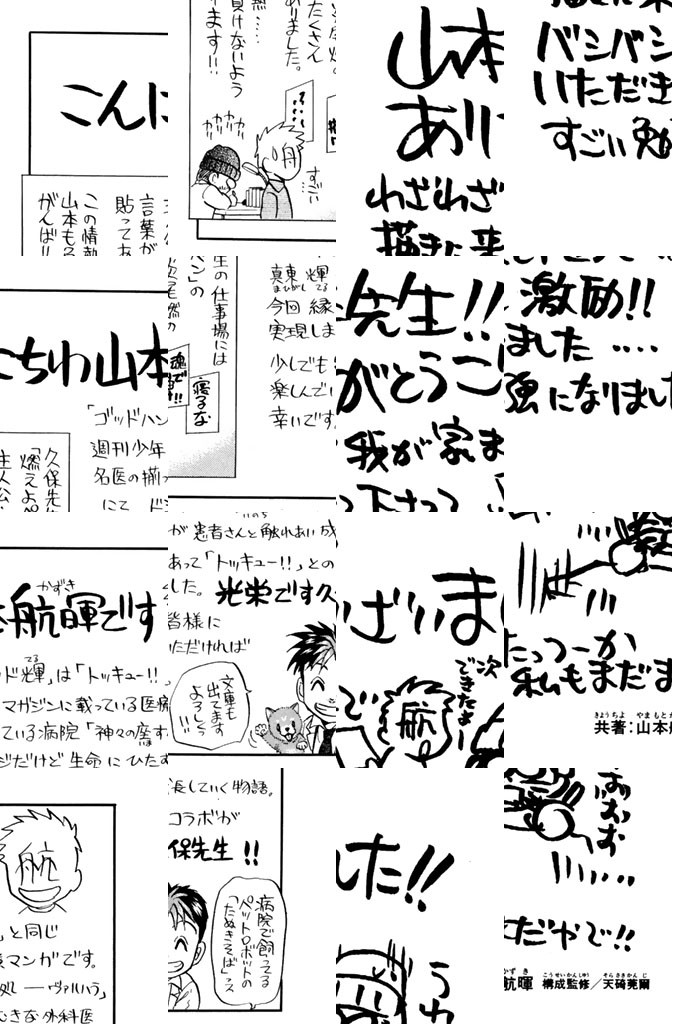 こんに
言葉が
貼ってあ
この情熱
山本もる
がんばり
たくさん
ありました。
負けないよう
ます!!
カカカカ
カカカカ
舟
すごい
山本
あり
わざわざ
描きに来
バシバシ
いただき
すごい勉
にちわ山本
「ゴッドハン
週刊少年
名医の揃っ
にて ド
久保先生
「燃えよペ
主人公
真東 輝
まひがし てる
今回 縁
実現しま
少しでも
楽しんでい
幸いです
生の仕事場には
ペン」の
魂で!!
寝るな
先生!!
がとうご
我が家ま
下さって
激励!!
ました ‥‥
強になりまし
かずき
本航暉です
ド輝」は「トッキュー!!
てる
マガジンに載っている医療
っている病院「神々の座す
ジだけど生命にひたす
いのち
が患者さんと触れあい成
あって「トッキュー!!」との
した。
光栄です久
皆様に
いただければ
文庫も
出てます
よろしう
ざいま
次
できたよー
で
航
たっつーか
私もまだま
きょうちょ やまもとか
共著:山本
航
」と同じ
マンガです。
ヴァルハラ」
むきな外科医
長していく物語。
コラボが
保先生!!
病院で飼ってる
ペットロボットの
「たぬきそば」っス
した!!
うわ
おおお
まだやで!!
かずき こうせいかんしゅう そらさきかんじ
航暉 構成監修/天碕莞爾